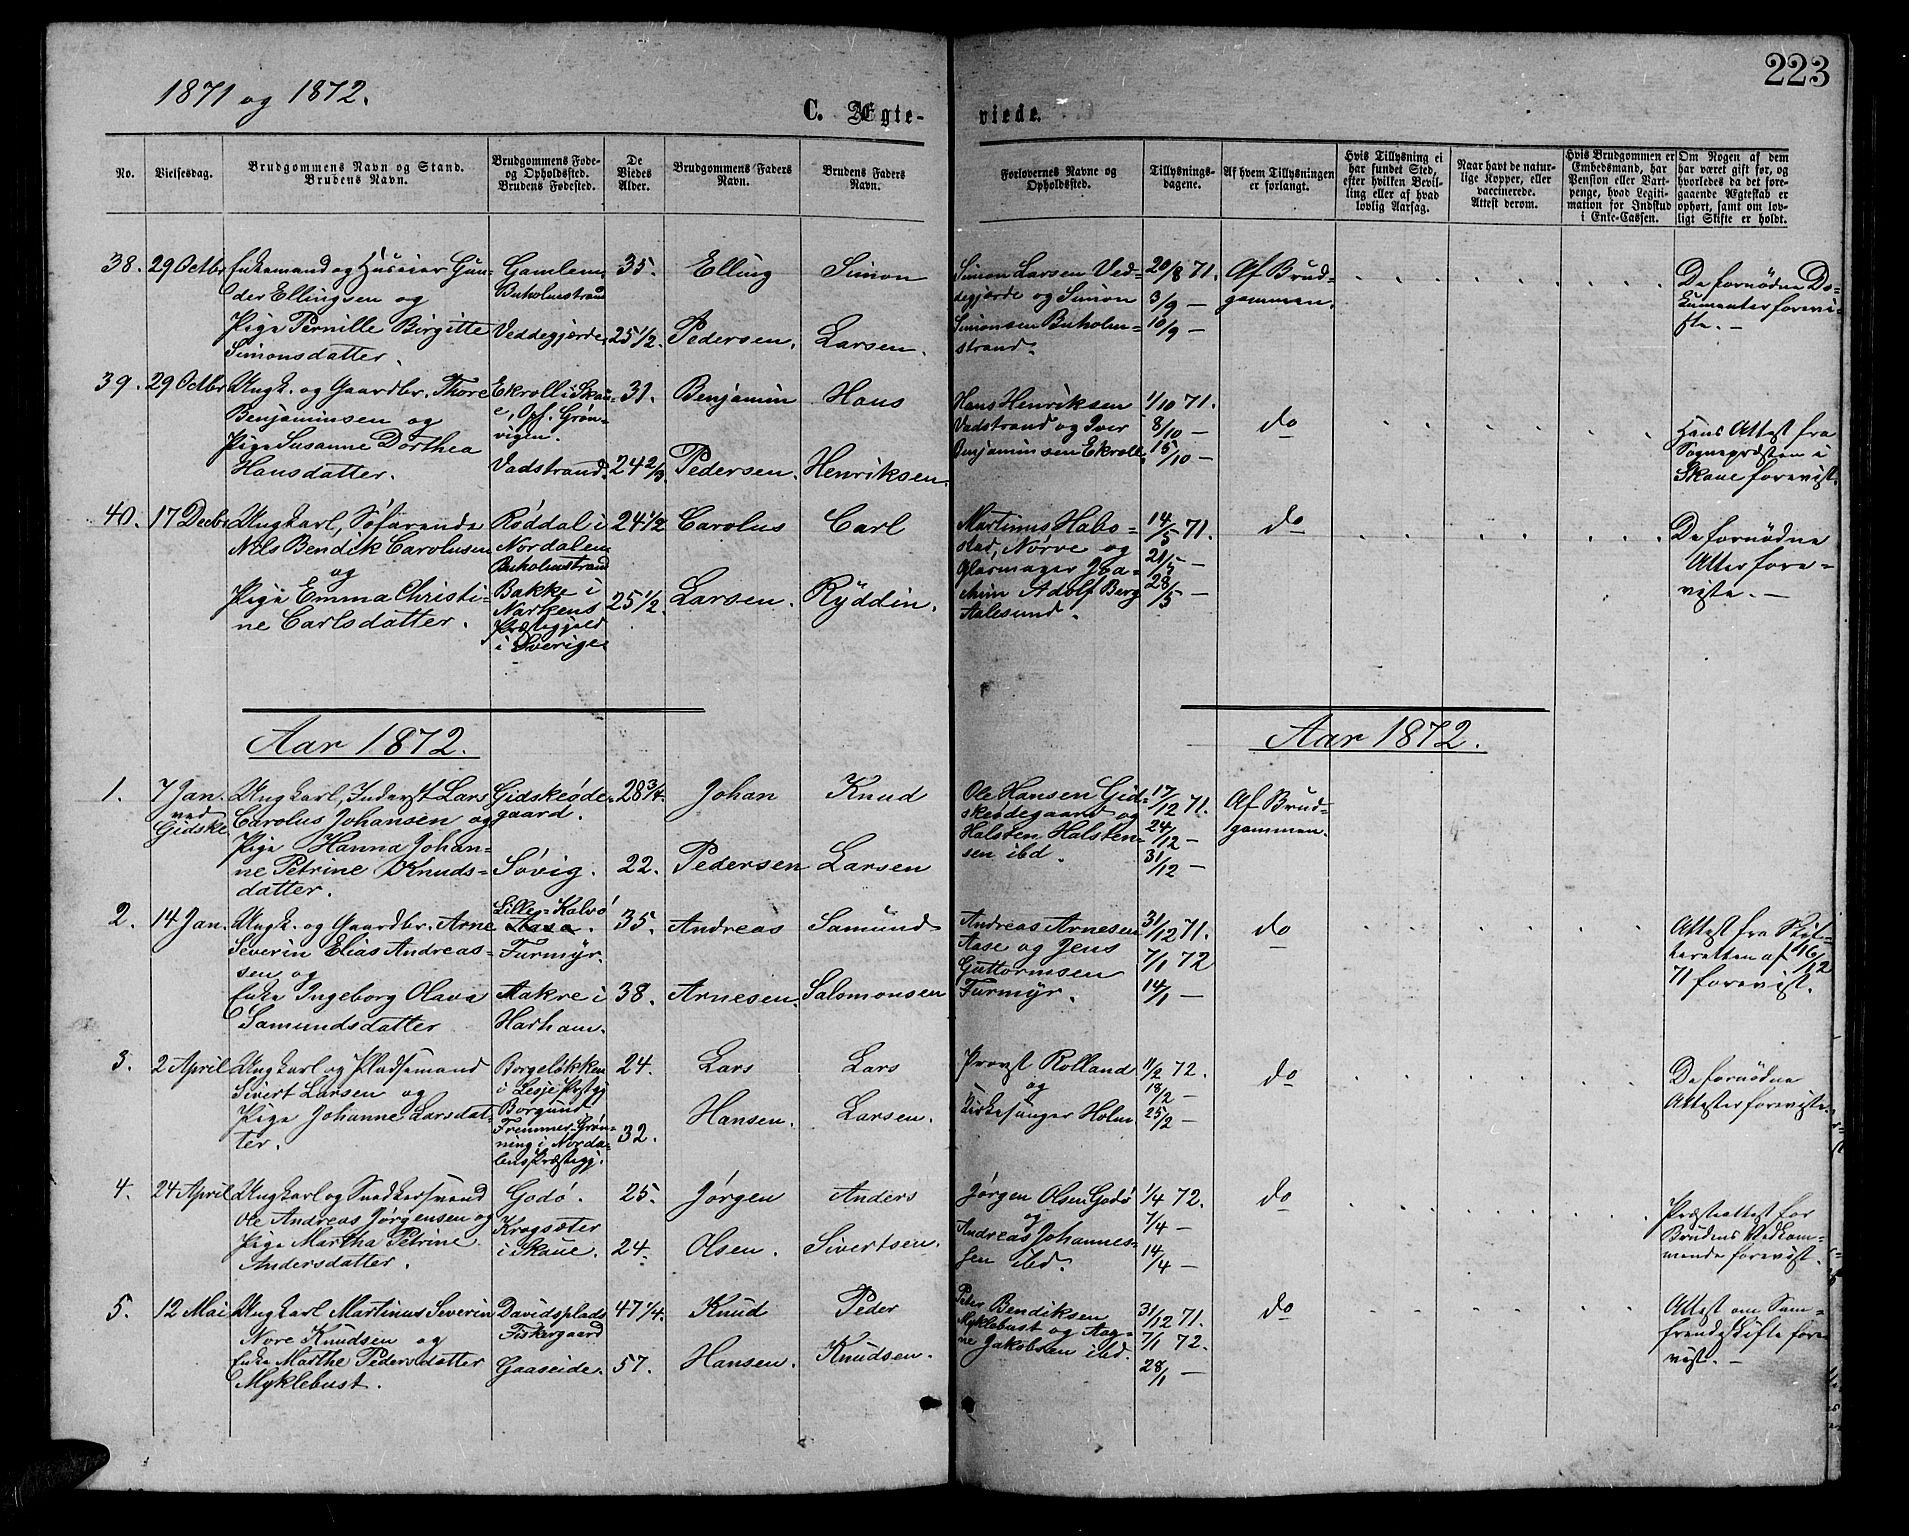 223
1871 og 1872.
C. Ægte-
viede.
No.
Vielsesdag.
Brudgommens Navn og Stand.
Brudens Navn.
Brudgommens Føde-
og Opholdssted.
Brudens Fødested.
De
Viedes
Alder.
Brudgommens Faders
Navn.
Brudens Faders
Navn.
Forlovernes Navne og
Opholdssted.
Tillysnings-
dagene.
Af hvem Tillysningen
er forlangt.
Hvis Tillysning ei
har fundet Sted,
efter hvilken Bevil-
ling eller af hvad
lovlig Aarsag.
Naar havt de natur-
lige Kopper, eller
vaccinerede.
Attest derom.
Hvis Brudgommen er
Embedsmand, har
Pension eller Vart-
penge, hvad Legiti-
mation for Indskud
i Enke-Cassen.
Om Nogen af dem
har været gift før, og
hvorledes da det fore-
gaaende Ægteskab er
ophørt, samt om lov-
ligt Skifte er holdt.
38.
29 Octbr
Enkemand og Huseier Gun-
der Ellingsen og
Pige Pernille Birgitte
Simonsdatter.
Gamlem
Buholmstrand
Veddegjerde
35.
25 1/2.
Elling
Pedersen.
Simon
Larsen.
Simon Larsen Ved-
degjerde og Simon
Simonsen Buholm-
strand.
20/8 71.
3/9 —
10/9 —
Af Brud-
gommen.
De fornødne Do-
kumenter forevi-
ste. —
39.
29 Octbr
Ungk. og Gaardbr. Thore
Benjaminsen og
Pige Susanne Dorthea
Hansdatter.
Ekroll i Skou-
e, Opf. Grøn-
vigen.
Vadstrand.
31.
24 2/3
Benjamin
Pedersen.
Hans
Henriksen.
Hans Henriksen
Vadstrand og Iver
Benjaminsen Ekroll.
1/10 71.
8/10 —
15/10 —
do
Hans Attest fra
Sognepræsten i
Skoue forevist.
40.
17 Decbr
Ungkarl, Søfarende
Nils Bendik Carolusen
og
Pige Emma Christi-
ne Carlsdatter.
Røddal i
Nordalen
Buholmstrand
Bakke i
Narkens
Præstegjeld
i Sverige
24 1/2
25 1/2.
Carolus
Larsen.
Carl
Ryddin.
Martinus Habo-
stad, Nørve og
Glarmager Joa-
chim Adolf Berg
Aalesund.
14/5 71.
21/5 —
28/5 —
do
De fornødne
Atter fore-
viste. —
Aar 1872.
Aar 1872.
1.
7 Jan.
ved
Gidske
Ungkarl, Inderst Lars
Carolus Johansen og
Pige Hanna Johan-
ne Petrine Knuds-
datter.
Gidskeøde-
gaard.
Søvig.
28 3/4.
22.
Johan
Pedersen
Knud
Larsen
Ole Hansen Gid-
skeødegaard og
Halsten Halsten-
sen ibd.
17/12 71.
24/12 —
31/12 —
Af Brud-
gommen.
2.
14 Jan.
Ungk. og Gaardbr. Arne
Severin Elias Andreas-
sen og
Enke Ingeborg Olava
Samundsdatter
Lille-Kalvø
Aase.
Furmyr.
Aakre i
Harham.
35.
38.
Andreas
Arnesen.
Samund
Salomonsen
Andreas Arnesen
Aase og Jens
Guttormsen
Furmyr.
31/12 71.
7/1 72
14/1 —
do
Attest fra Skif-
teretten af 16/12
71 forevist.
3.
2 April
Ungkarl og Pladsemand
Sivert Larsen og
Pige Johanne Larsdat-
ter.
Borgeløkken
i Lesje Præstegj
Borgund
Fremmer-Grøn-
ning i Norda-
lens Præstegj.
24.
32.
Lars
Hansen.
Lars
Larsen.
Provst Rolland
og
Kirkesanger Holm
11/2 72.
18/2 —
25/2 —
do
De fornødne
Attester foreviste.
4.
24 April
Ungkarl og Snedkersvend
Ole Andreas Jørgensen og
Pige Martha Petrine
Andersdatter.
Godø.
Krogsæter
i Skoue.
25.
24.
Jørgen
Olsen.
Anders
Sivertsen.
Jørgen Olsen Godø
og
Andreas Johannes-
sen ibd.
1/4 72.
7/4 —
14/4 —
do
Præsteattest for
Brudens Vedkom-
mende forevist.
5.
12 Mai
Ungkarl Martinus Severin
Nore Knudsen og
Enke Marthe Pedersdatter
Myklebust.
Davidsplads
Fiskergaard
Gaaseide.
47 1/4.
57.
Knud
Hansen.
Peder
Knudsen.
Peter Bendiksen
Myklebust og Aag-
ne Jakobsen ibd.
31/12 71.
7/1 72.
28/1 —
do
Attest om Sam-
frendeskifte fore-
vist. —